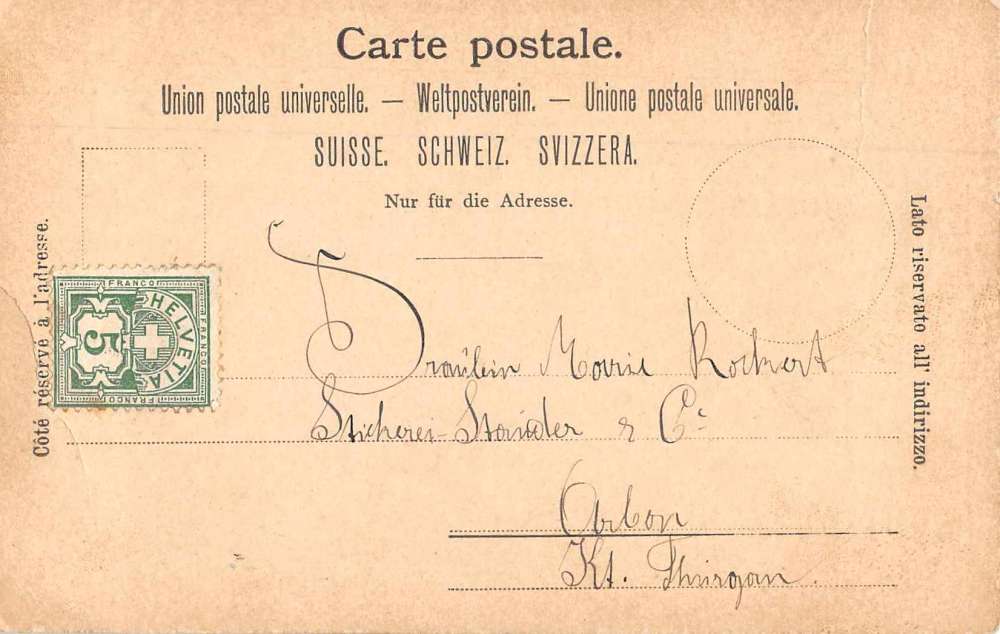 Carte postale.
Union postale universelle. — Weltpostverein. — Unione postale universale.
SUISSE. SCHWEIZ. SVIZZERA.
Nur für die Adresse.
Côté réservé à l'adresse.
Lato riservato all' indirizzo.
FRANCO
FRANCO
FRANCO
HELVETIA
5
Fräulein Marie
Stickerei-Stauder & Cie
Arbon
Kt. Thurgau.